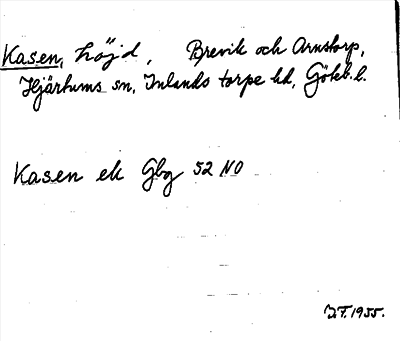 Kasen, höjd, Brevik och Arnstorp,
Hjärtums sn, Inlands torpe hd, Götebl.
Kasen ek Gbg 52 NO
I.F. 1955.